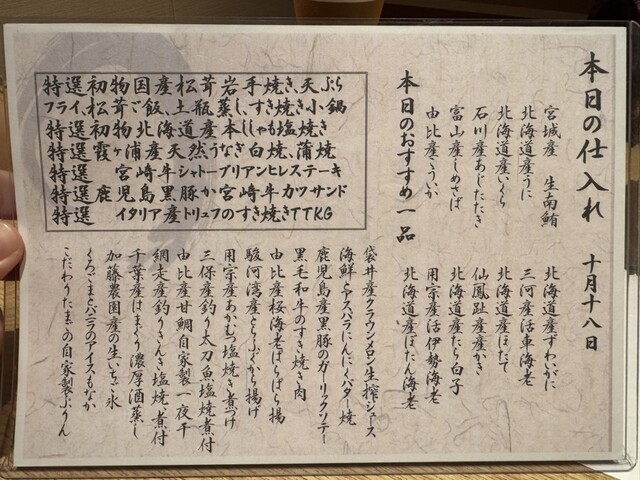 本日の仕入れ 十月十八日
宮城産 生南鮪
北海道産うに
北海道産いくら
石川産あじたたき
富山産しめさば
由比産こういか
北海道産ずわいがに
三河産活車海老
北海道産ほたて
仙鳳趾産産かき
北海道産たら白子
用宗産活伊勢海老
北海道産ぼたん海老
本日のおすすめ一品
特選初物国産松茸岩手焼き、天ぷら
フライ、松茸ご飯、土瓶蒸し、すき焼き小鍋
特選初物北海道産本ししゃも塩焼き
特選霞ヶ浦産天然うなぎ白焼、蒲焼
特選 宮崎牛シャトーブリアンヒレステーキ
特選鹿児島黒豚か宮崎牛カツサンド
特選 イタリア産トリュフのすき焼きTTKG
袋井産クラウンメロン生搾ジュース
海鮮とアスパラにんにくバター焼
鹿児島産黒豚のガーリックソテー
黒毛和牛のすき焼き肉
由比産桜海老ばらばら揚
駿河湾産とらふぐから揚げ
用宗産あかむつ塩焼き煮つけ
三保産釣り太刀魚塩焼煮付
由比産甘鯛自家製一夜干
網走産釣りきんき塩焼煮付
千葉産はまぐり濃厚酒蒸し
加藤農園産の生いちご氷
くろごまとバニラのアイスもなか
こだわりたまごの自家製ぷりん